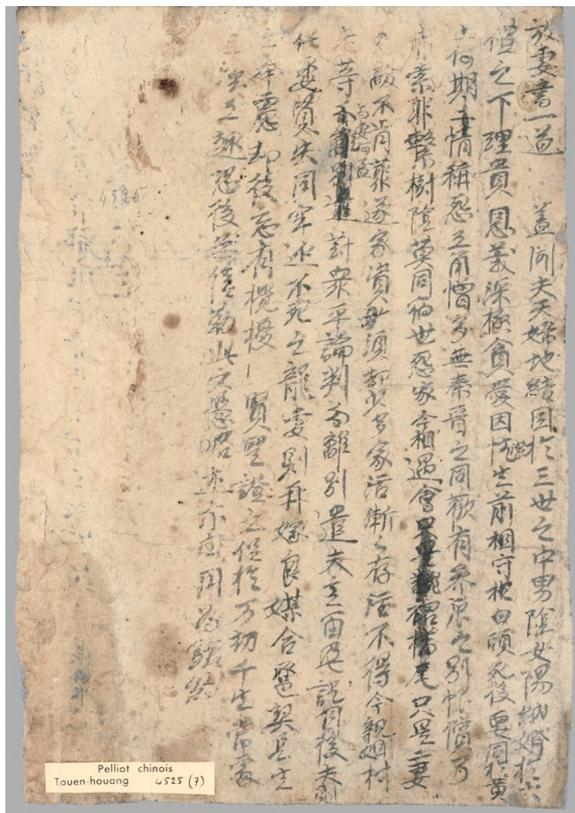 放妻書一道 蓋聞夫天婦地結因於三世之中男陰女陽納婚於六
禮之下理貴恩義深極貪愛因性生前相守抱白頭死後要同於黃
土何期二情稱怨互角憎多無秦晉之同歡有參辰之別恨償了
赤索非繫樹陰莫同宿世怨家今相遇會只是二要
互敵不肯藂遂家資須却少多家活漸々存活不得今親姻村
巷等與妻阿孟對眾平論判分離別遣夫主留盈訖自後夫則
任娶賢失同牢延不死之龍妻則再嫁良媒合巹契長生
之奉慮却後忘有攪擾賢聖證之促於万劫千生常處
之趣恐後無信勒此文憑略述尔由用為驗約
4525
Pelliot chinois
Touen-houang 4525 (7)